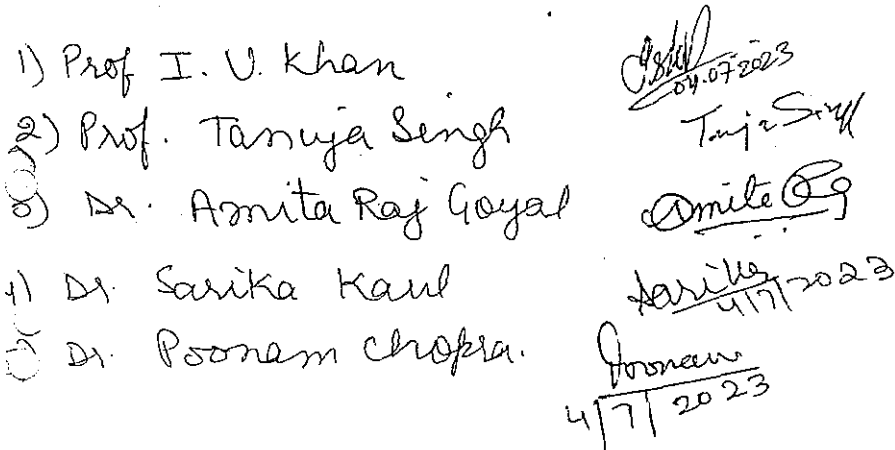 1) Prof I. U. Khan
04.07.2023
2) Prof. Tanuja Singh
3) Dr. Amita Raj Goyal
4) Dr. Sarika Kaul
Sarika
4/7/2023
5) Dr. Poonam Chopra.
Poonam
4/7/2023